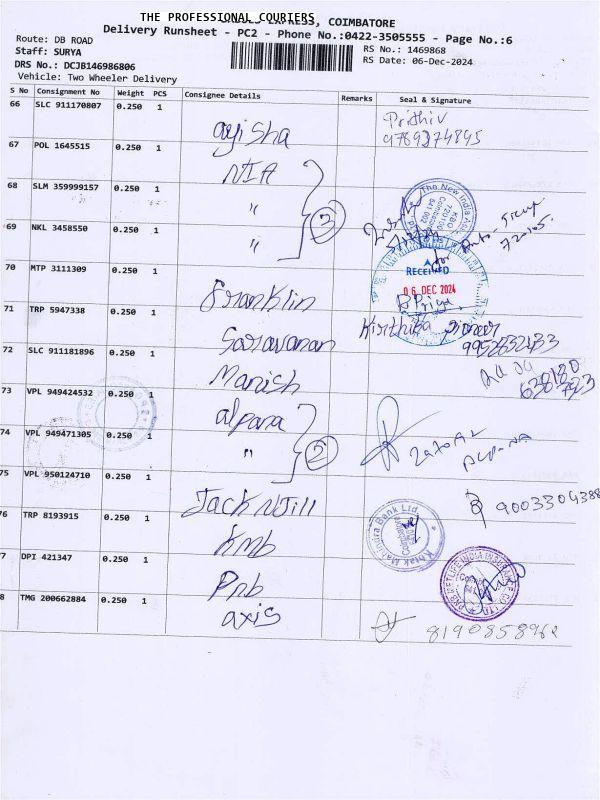 THE PROFESSIONAL COURIERS
EXPRESS, COIMBATORE
Delivery Runsheet - PC2 - Phone No.:0422-3505555 - Page No.:6
Route: DB ROAD
Staff: SURYA
DRS No.: DCJB146986806
Vehicle: Two Wheeler Delivery
RS No.: 1469868
RS Date: 06-Dec-2024
S No Consignment No Weight PCS Consignee Details Remarks Seal & Signature
66 SLC 911170807 0.250 1 ayisha Prithiv
9789274845
67 POL 1645515 0.250 1 NIA
68 SLM 359999157 0.250 1 "
3
The New India
69 NKL 3458550 0.250 1 "
70 MTP 3111309 0.250 1 Franklin
RECEIVED
06 DEC 2024
71 TRP 5947338 0.250 1 Saravanan Kirthika
72 SLC 911181896 0.250 1 Manish
73 VPL 949424532 0.250 1 alpana
74 VPL 949471305 0.250 1 "
2
75 VPL 950124710 0.250 1 Jack N Jill 9003304388
76 TRP 8193915 0.250 1 Kmb
Kotak Mahindra Bank Ltd.
77 DPI 421347 0.250 1 Pnb
PNB METLIFE INDIA INSURANCE CO. LTD.
78 TMG 200662884 0.250 1 axis